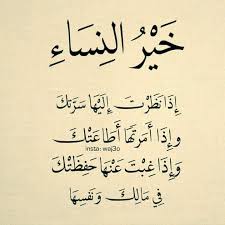 خَيْرُ النِسَاءِ
إِذَا نَظَرْتَ إِلَيْهَا سَرَّتكَ
وإِذَا أَمَرتَهَا أَطَاعَتْكَ
insta: waj3o
وَإِذَا غِبْتَ عَنْهَا حَفِظَتْكَ
فِي مَالِكَ وَنَفْسِهَا